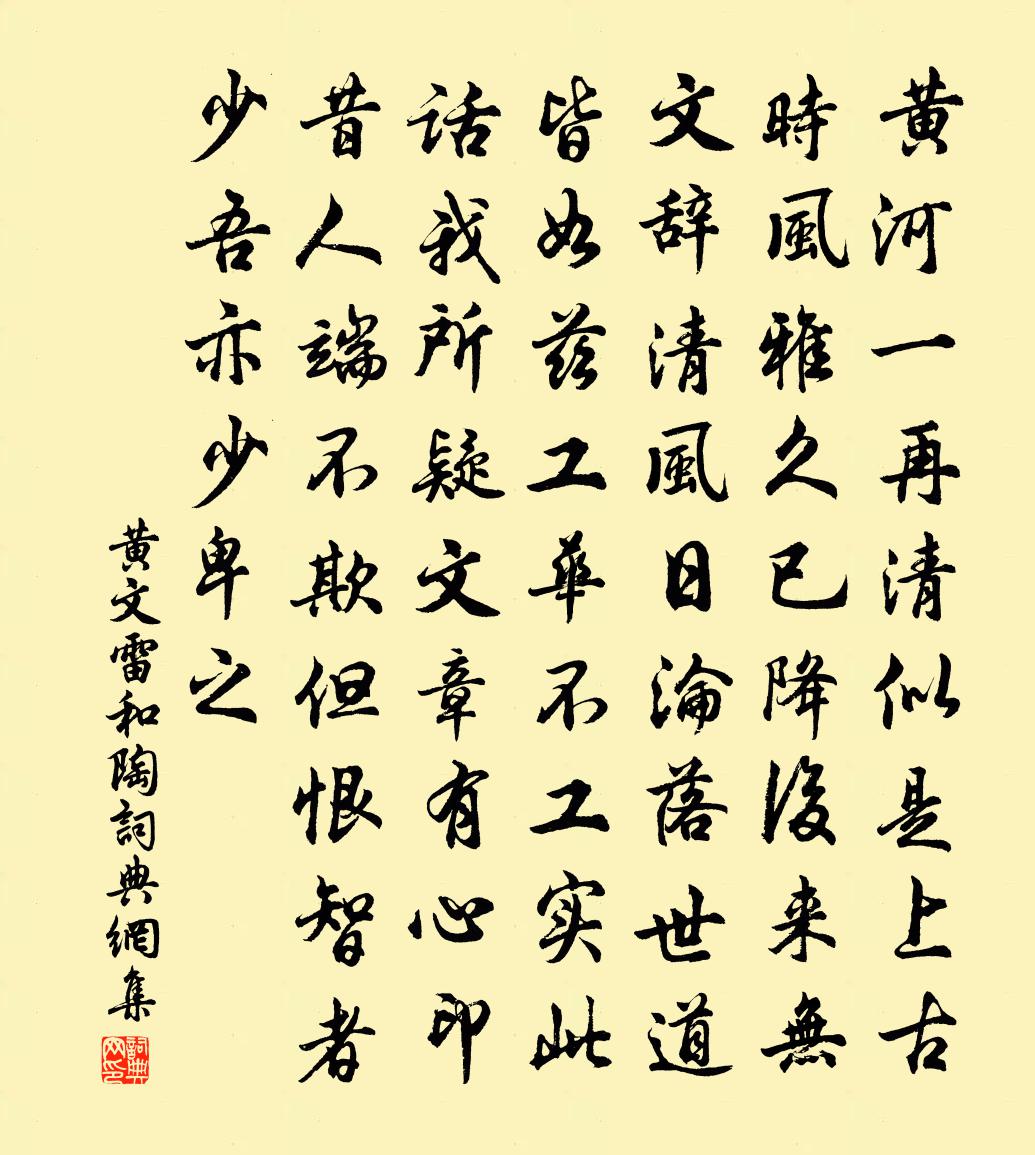 黄河一再清似是上古
時風雅久已降後来無
文辞清風日淪落世道
皆如兹工華不工实此
話我所疑文章有心印
昔人端不欺但恨智者
少吾亦少卑之
黄文雷和陶詞典網集
詞典网印